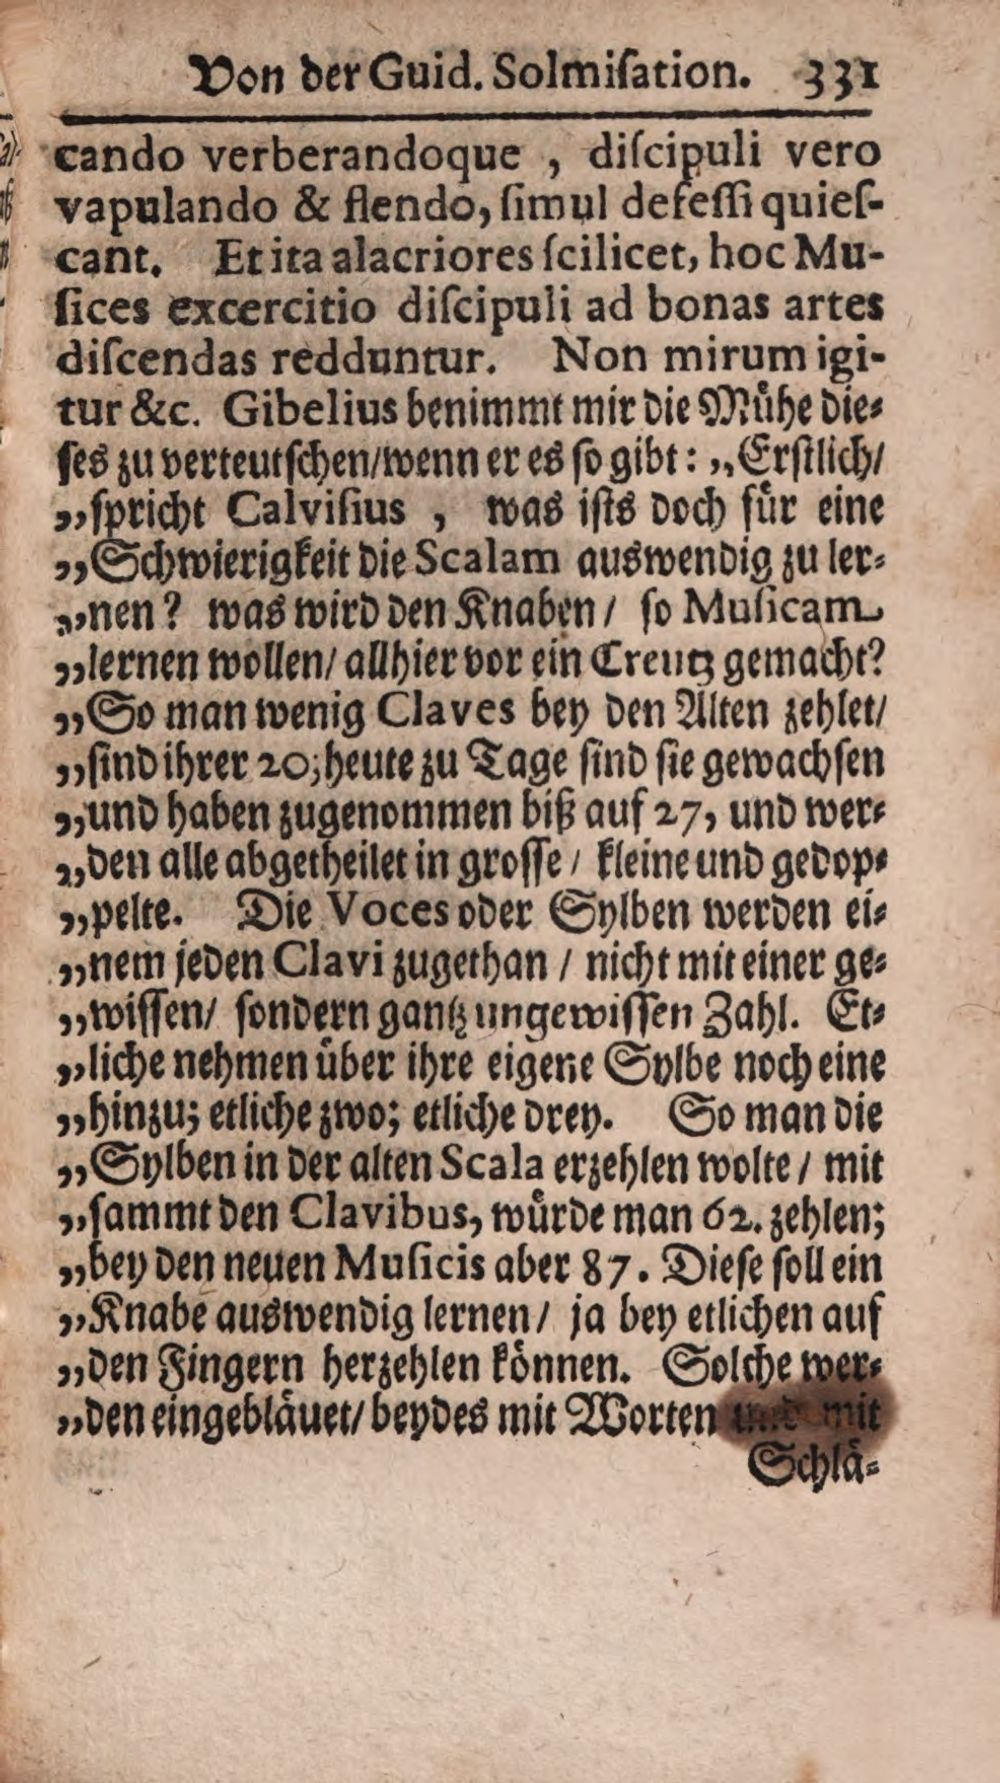 Von der Guid. Solmiſation. 331
cando verberandoque , diſcipuli vero
vapulando & flendo, ſimul defeſſi quieſ-
cant. Et ita alacriores ſcilicet, hoc Mu-
ſices excercitio diſcipuli ad bonas artes
diſcendas redduntur. Non mirum igi-
tur &c. Gibelius benimmt mir die Mühe die-
ſes zu verteutſchen/wenn er es ſo gibt: „Erſtlich/
„ſpricht Calviſius , was iſts doch für eine
„Schwierigkeit die Scalam auswendig zu ler-
„nen? was wird den Knaben / ſo Muſicam
„lernen wollen/ allhier vor ein Creutz gemacht?
„So man wenig Claves bey den Alten zehlet/
„ſind ihrer 20; heute zu Tage ſind ſie gewachſen
„und haben zugenommen biß auf 27, und wer-
„den alle abgetheilet in groſſe / kleine und gedop-
„pelte. Die Voces oder Sylben werden ei-
„nem jeden Clavi zugethan / nicht mit einer ge-
„wiſſen/ ſondern gantz ungewiſſen Zahl. Et-
„liche nehmen über ihre eigene Sylbe noch eine
„hinzu; etliche zwo; etliche drey. So man die
„Sylben in der alten Scala erzehlen wolte / mit
„ſammt den Clavibus, würde man 62. zehlen;
„bey den neuen Muſicis aber 87. Dieſe ſoll ein
„Knabe auswendig lernen / ja bey etlichen auf
„den Fingern herzehlen können. Solche wer-
„den eingebläuet/ beydes mit Worten und mit
Schlä-